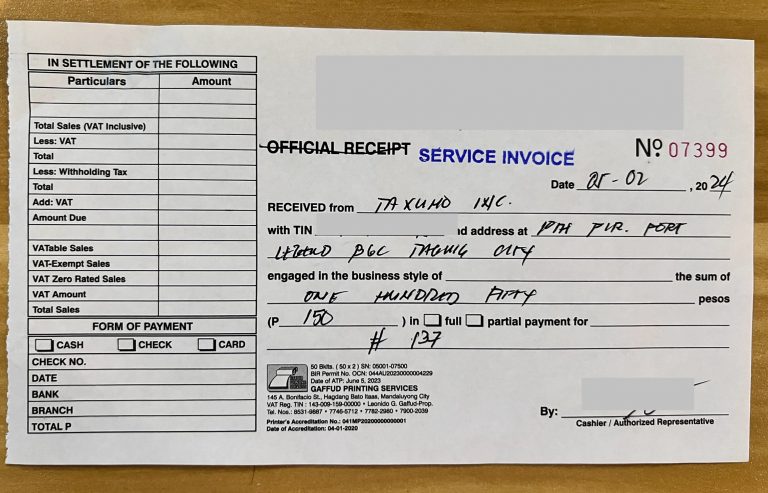 IN SETTLEMENT OF THE FOLLOWING
Particulars Amount
Total Sales (VAT Inclusive)
Less: VAT
Total
Less: Withholding Tax
Total
Add: VAT
Amount Due
VATable Sales
VAT-Exempt Sales
VAT Zero Rated Sales
VAT Amount
Total Sales
FORM OF PAYMENT
CASH CHECK CARD
CHECK NO.
DATE
BANK
BRANCH
TOTAL P
OFFICIAL RECEIPT SERVICE INVOICE No 07399
Date 05-02, 2024
RECEIVED from TAXUMO INC.
with TIN address at FLR. FORT
LEGEND BGC TAGUIG CITY
engaged in the business style of the sum of
ONE HUNDRED FIFTY pesos
(P 150 ) in full partial payment for
# 137
50 Bklts. ( 50 x 2 ) SN: 05001-07500
BIR Permit No. OCN: 044AU20230000004229
Date of ATP: June 5, 2023
GAFFUD PRINTING SERVICES
145 A. Bonifacio St., Hagdang Bato Itaas, Mandaluyong City
VAT Reg. TIN : 143-009-159-00000 • Leonido G. Gaffud-Prop.
Tel. Nos.: 8531-9687 • 7746-5712 • 7782-2980 • 7900-2039
Printer's Accreditation No.: 041MP20200000000001
Date of Accreditation: 04-01-2020
By:
Cashier / Authorized Representative